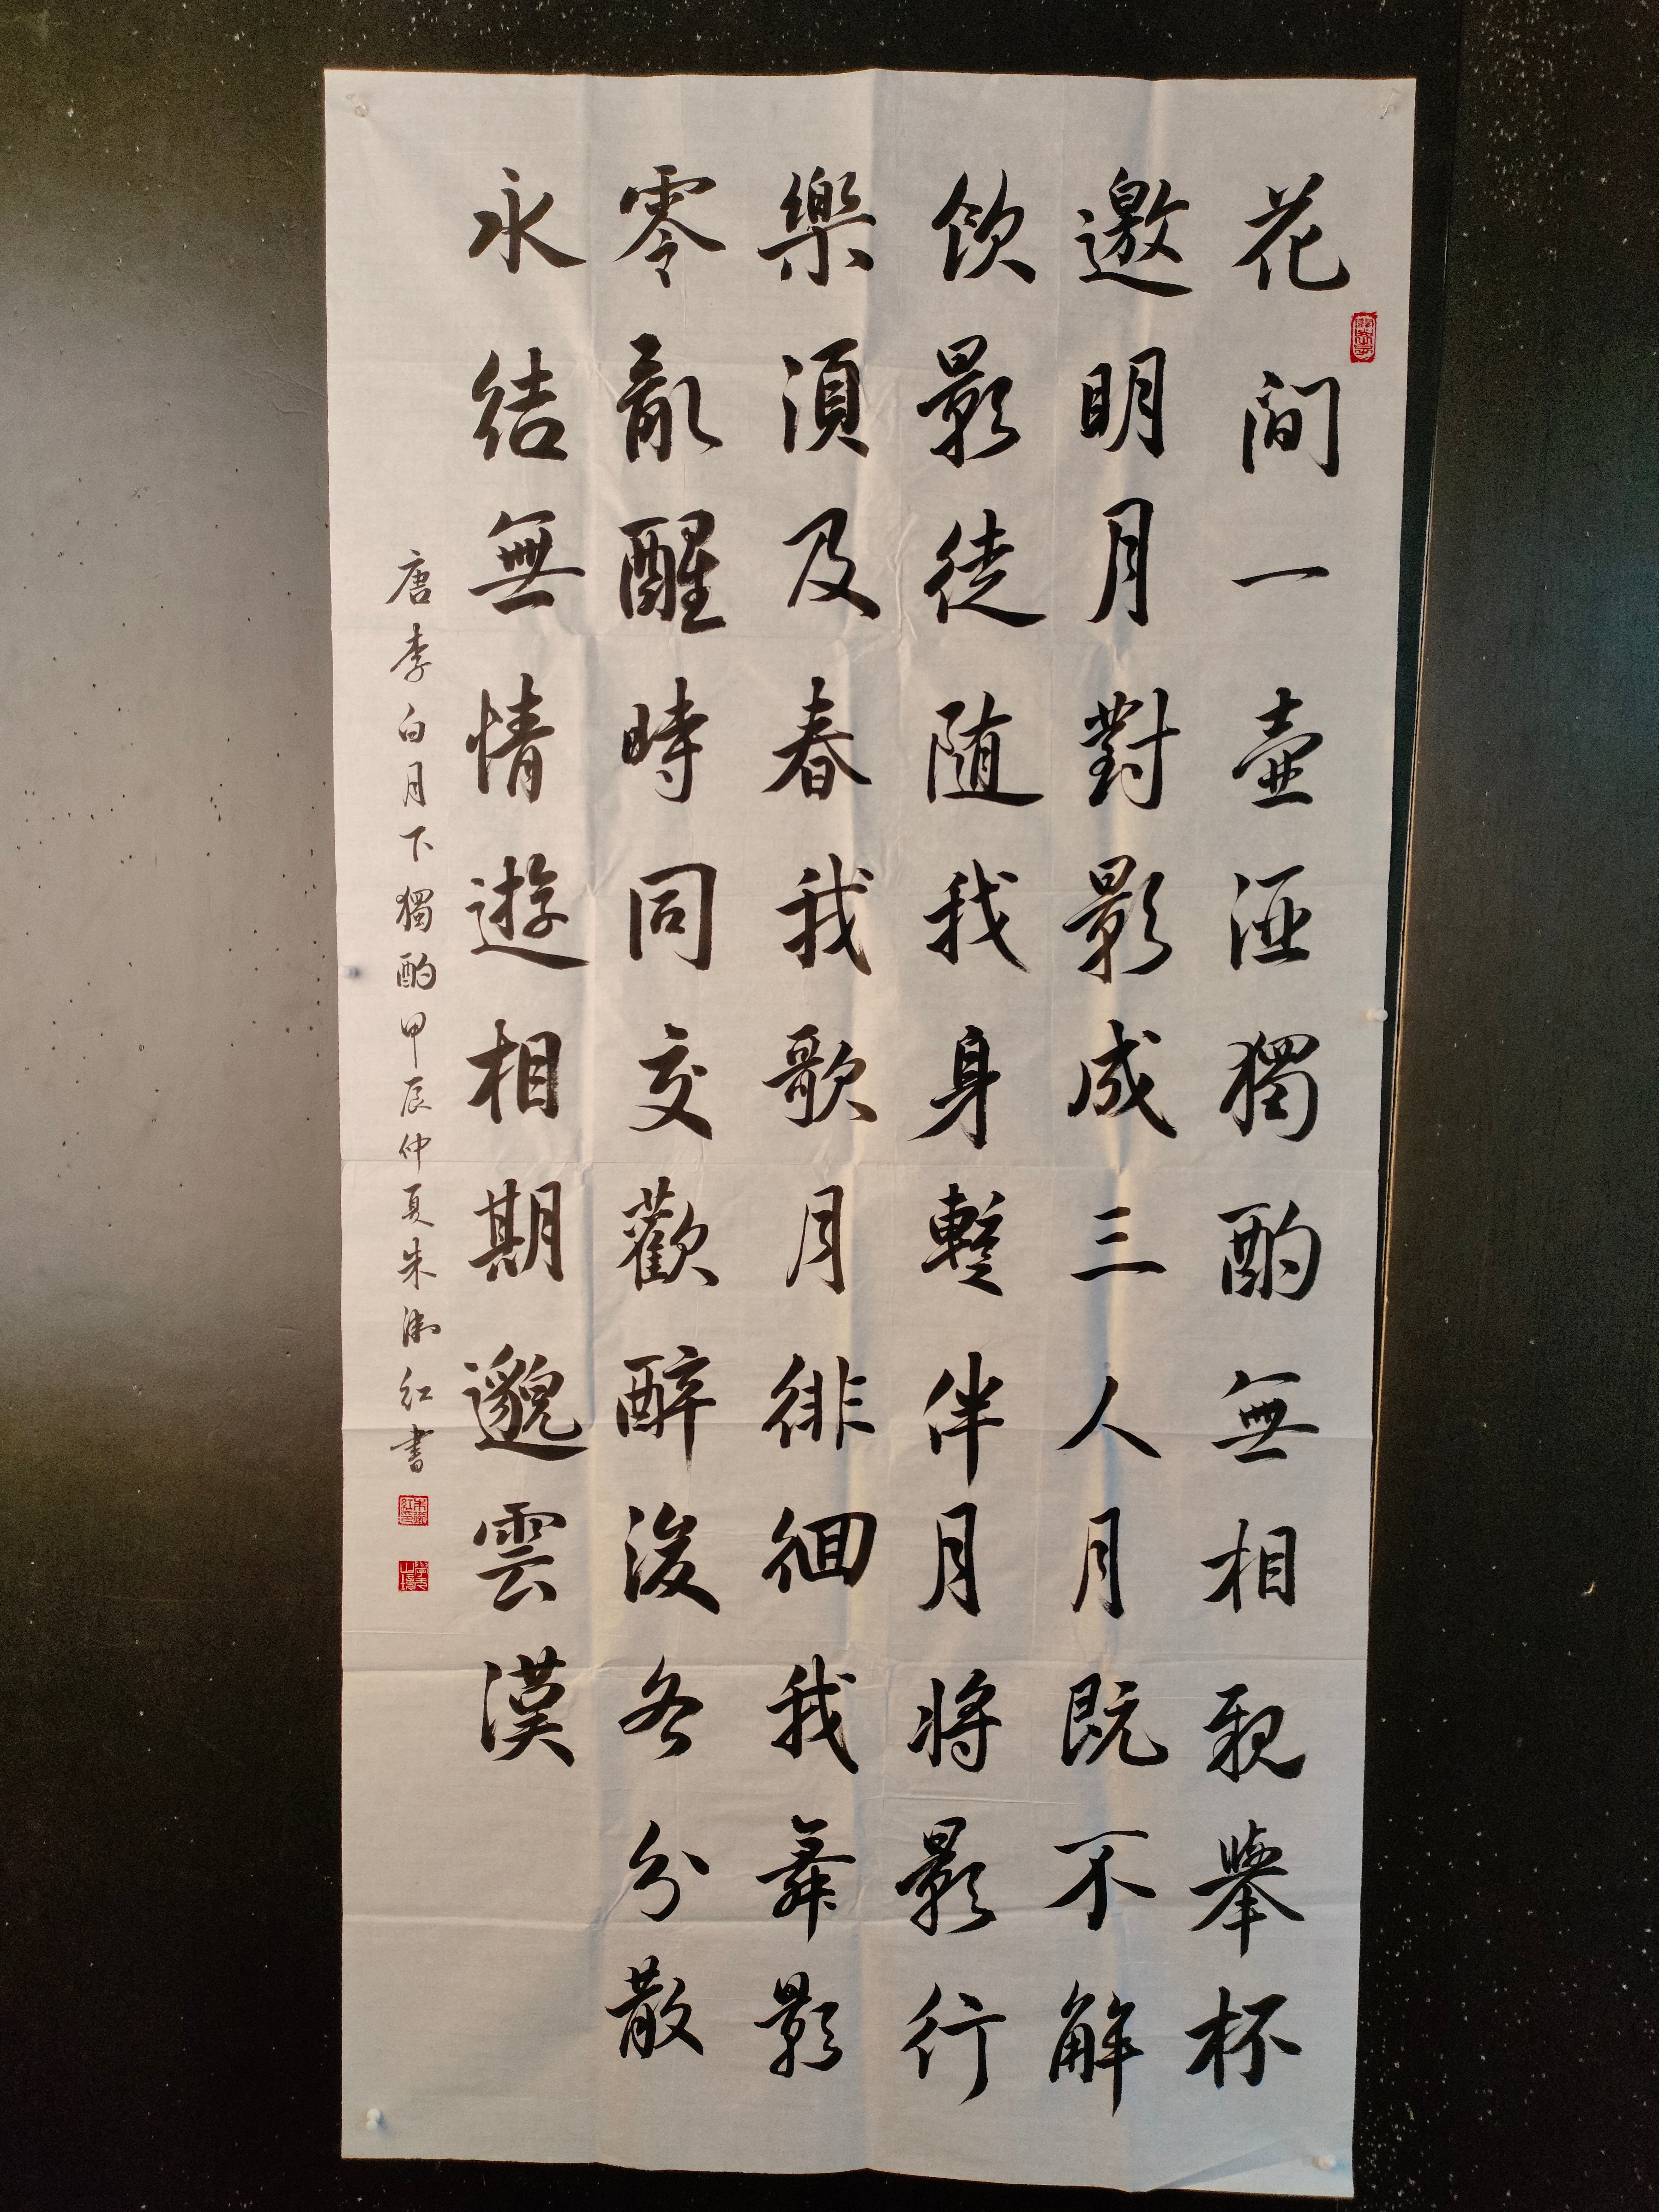 花间一壺酒獨酌無相親舉杯
邀明月對影成三人月既不解
飲影徒随我身暫伴月将影行
樂須及春我歌月徘徊我舞影
零亂醒時同交歡醉後各分散
永结無情遊相期邈雲漢
唐李白月下獨酌甲辰仲夏朱湘红書